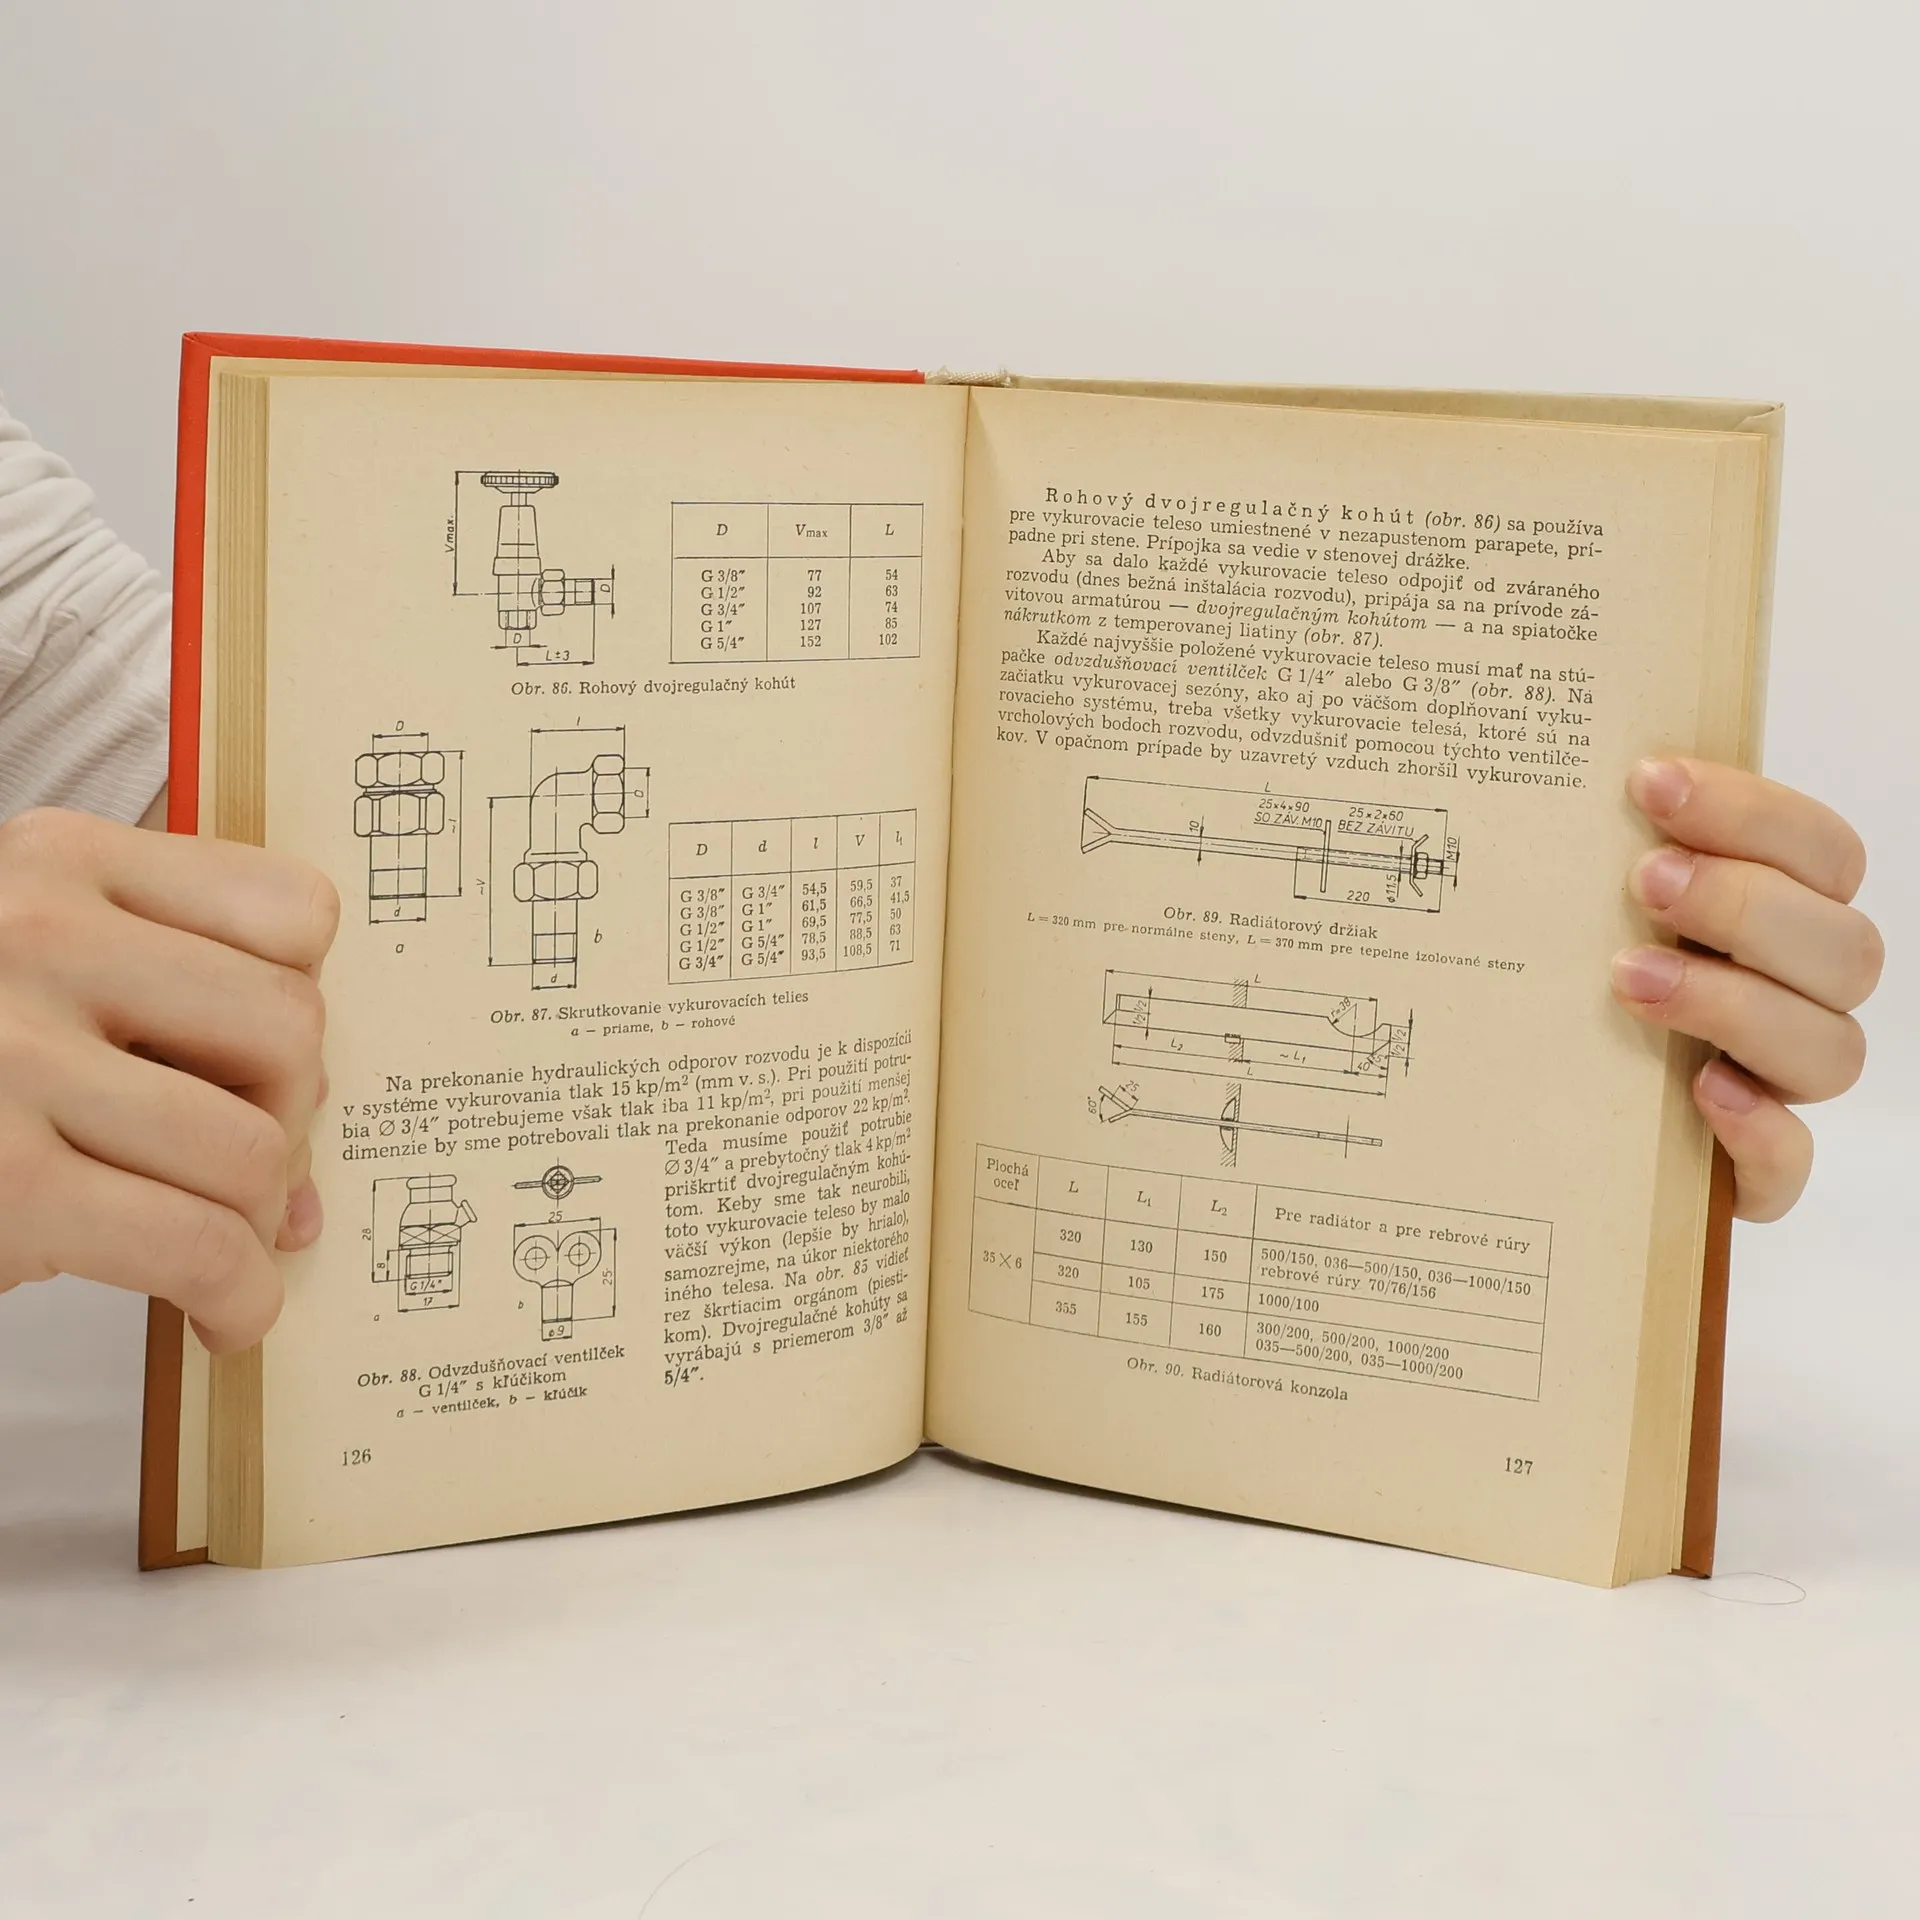 Vmax.
D
D
L±3
D Vmax L
G 3/8″ 77 54
G 1/2″ 92 63
G 3/4″ 107 74
G 1″ 127 85
G 5/4″ 152 102
Obr. 86. Rohový dvojregulačný kohút
D
~l
d
a
l
D
~V
d
b
D d l V l₁
G 3/8″ G 3/4″ 54,5 59,5 37
G 3/8″ G 1″ 61,5 66,5 41,5
G 1/2″ G 1″ 69,5 77,5 50
G 1/2″ G 5/4″ 78,5 88,5 63
G 3/4″ G 5/4″ 93,5 108,5 71
Obr. 87. Skrutkovanie vykurovacích telies
a — priame, b — rohové
Na prekonanie hydraulických odporov rozvodu je k dispozícii
v systéme vykurovania tlak 15 kp/m² (mm v. s.). Pri použití potru-
bia Ø 3/4″ potrebujeme však tlak iba 11 kp/m², pri použití menšej
dimenzie by sme potrebovali tlak na prekonanie odporov 22 kp/m².
Teda musíme použiť potrubie
Ø 3/4″ a prebytočný tlak 4 kp/m²
priškrtiť dvojregulačným kohú-
tom. Keby sme tak neurobili,
toto vykurovacie teleso by malo
väčší výkon (lepšie by hrialo),
samozrejme, na úkor niektorého
iného telesa. Na obr. 85 vidieť
rez škrtiacim orgánom (piesti-
kom). Dvojregulačné kohúty sa
vyrábajú s priemerom 3/8″ až
5/4″.
28
8
G 1/4″
17
a
25
25
b
ø9
Obr. 88. Odvzdušňovací ventilček
G 1/4″ s kľúčikom
a — ventilček, b — kľúčik
126
Rohový dvojregulačný kohút (obr. 86) sa používa
pre vykurovacie teleso umiestnené v nezapustenom parapete, prí-
padne pri stene. Prípojka sa vedie v stenovej drážke.
Aby sa dalo každé vykurovacie teleso odpojiť od zváraného
rozvodu (dnes bežná inštalácia rozvodu), pripája sa na prívode zá-
vitovou armatúrou — dvojregulačným kohútom — a na spiatočke
nákrutkom z temperovanej liatiny (obr. 87).
Každé najvyššie položené vykurovacie teleso musí mať na stú-
pačke odvzdušňovací ventilček G 1/4″ alebo G 3/8″ (obr. 88). Na
začiatku vykurovacej sezóny, ako aj po väčšom doplňovaní vyku-
rovacieho systému, treba všetky vykurovacie telesá, ktoré sú na
vrcholových bodoch rozvodu, odvzdušniť pomocou týchto ventilče-
kov. V opačnom prípade by uzavretý vzduch zhoršil vykurovanie.
L
25×4×90 25×2×60
SO ZÁV. M10 BEZ ZÁVITU
10
M10
ø11,5
220
Obr. 89. Radiátorový držiak
L = 320 mm pre normálne steny, L = 370 mm pre tepelne izolované steny
L
r=38
1/2 1/2
1/2 1/2
L₂
~L₁
40
L
25
60°
Plochá oceľ L L₁ L₂ Pre radiátor a pre rebrové rúry
35 × 6 320 130 150 500/150, 036—500/150, 036—1000/150
rebrové rúry 70/76/156
320 105 175 1000/100
355 155 160 300/200, 500/200, 1000/200
035—500/200, 035—1000/200
Obr. 90. Radiátorová konzola
127